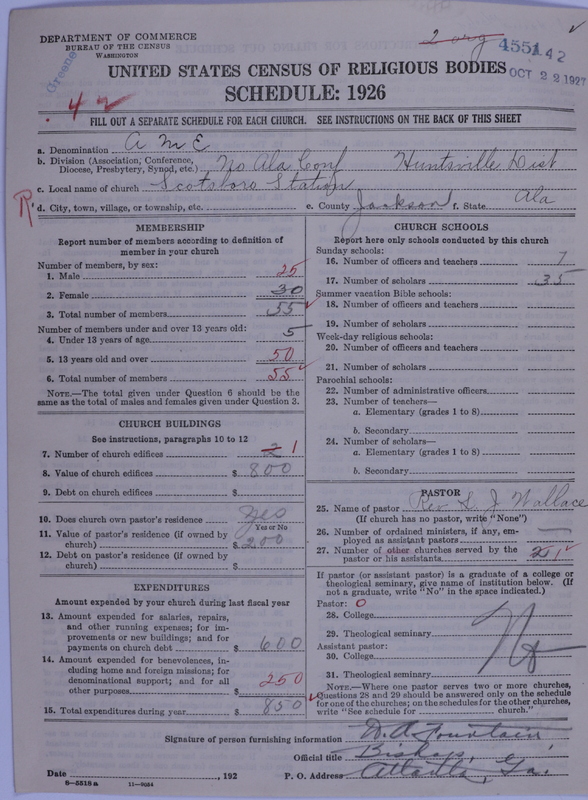 DEPARTMENT OF COMMERCE
BUREAU OF THE CENSUS
WASHINGTON
Greene
2 org
4551 42
OCT 22 1927
UNITED STATES CENSUS OF RELIGIOUS BODIES
SCHEDULE: 1926
42
FILL OUT A SEPARATE SCHEDULE FOR EACH CHURCH. SEE INSTRUCTIONS ON THE BACK OF THIS SHEET
a. Denomination A M E
b. Division (Association, Conference, Diocese, Presbytery, Synod, etc.) No Ala Conf Huntsville Dist
c. Local name of church Scotsboro Station
R
d. City, town, village, or township, etc. e. County Jackson f. State Ala
MEMBERSHIP
Report number of members according to definition of member in your church
Number of members, by sex:
1. Male 25
2. Female 30
3. Total number of members 55
Number of members under and over 13 years old:
4. Under 13 years of age 5
5. 13 years old and over 50
6. Total number of members 55
NOTE.—The total given under Question 6 should be the same as the total of males and females given under Question 3.
CHURCH BUILDINGS
See instructions, paragraphs 10 to 12
7. Number of church edifices 2 1
8. Value of church edifices $ 800
9. Debt on church edifices $
10. Does church own pastor's residence Yes
Yes or No
11. Value of pastor's residence (if owned by church) $ 200
12. Debt on pastor's residence (if owned by church) $
EXPENDITURES
Amount expended by your church during last fiscal year
13. Amount expended for salaries, repairs, and other running expenses; for improvements or new buildings; and for payments on church debt $ 600
14. Amount expended for benevolences, including home and foreign missions; for denominational support; and for all other purposes $ 250
15. Total expenditures during year $ 850
CHURCH SCHOOLS
Report here only schools conducted by this church
Sunday schools:
16. Number of officers and teachers 7
17. Number of scholars 35
Summer vacation Bible schools:
18. Number of officers and teachers
19. Number of scholars
Week-day religious schools:
20. Number of officers and teachers
21. Number of scholars
Parochial schools:
22. Number of administrative officers
23. Number of teachers—
a. Elementary (grades 1 to 8)
b. Secondary
24. Number of scholars—
a. Elementary (grades 1 to 8)
b. Secondary
PASTOR
25. Name of pastor Rev S. J Wallace
(If church has no pastor, write "None")
26. Number of ordained ministers, if any, employed as assistant pastors
27. Number of other churches served by the pastor or his assistants 2 1
If pastor (or assistant pastor) is a graduate of a college or theological seminary, give name of institution below. (If not a graduate, write "No" in the space indicated.)
Pastor: 0
28. College
29. Theological seminary
No
Assistant pastor:
30. College
31. Theological seminary
NOTE.—Where one pastor serves two or more churches, Questions 28 and 29 should be answered only on the schedule for one of the churches; on the schedules for the other churches, write "See schedule for church."
Signature of person furnishing information D. A. Fountain
Official title Bishop,
Date , 192
P. O. Address Atlanta, Ga.
6—5518a 11—9034